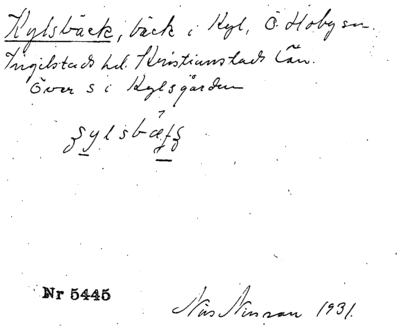 Kylsbäck, bäck i Kyl, Ö. Hoby sn.
Ingelstads hd. Kristianstads län.
Över s i Kylsgården
Nr 5445
Nils Nilsson 1931.